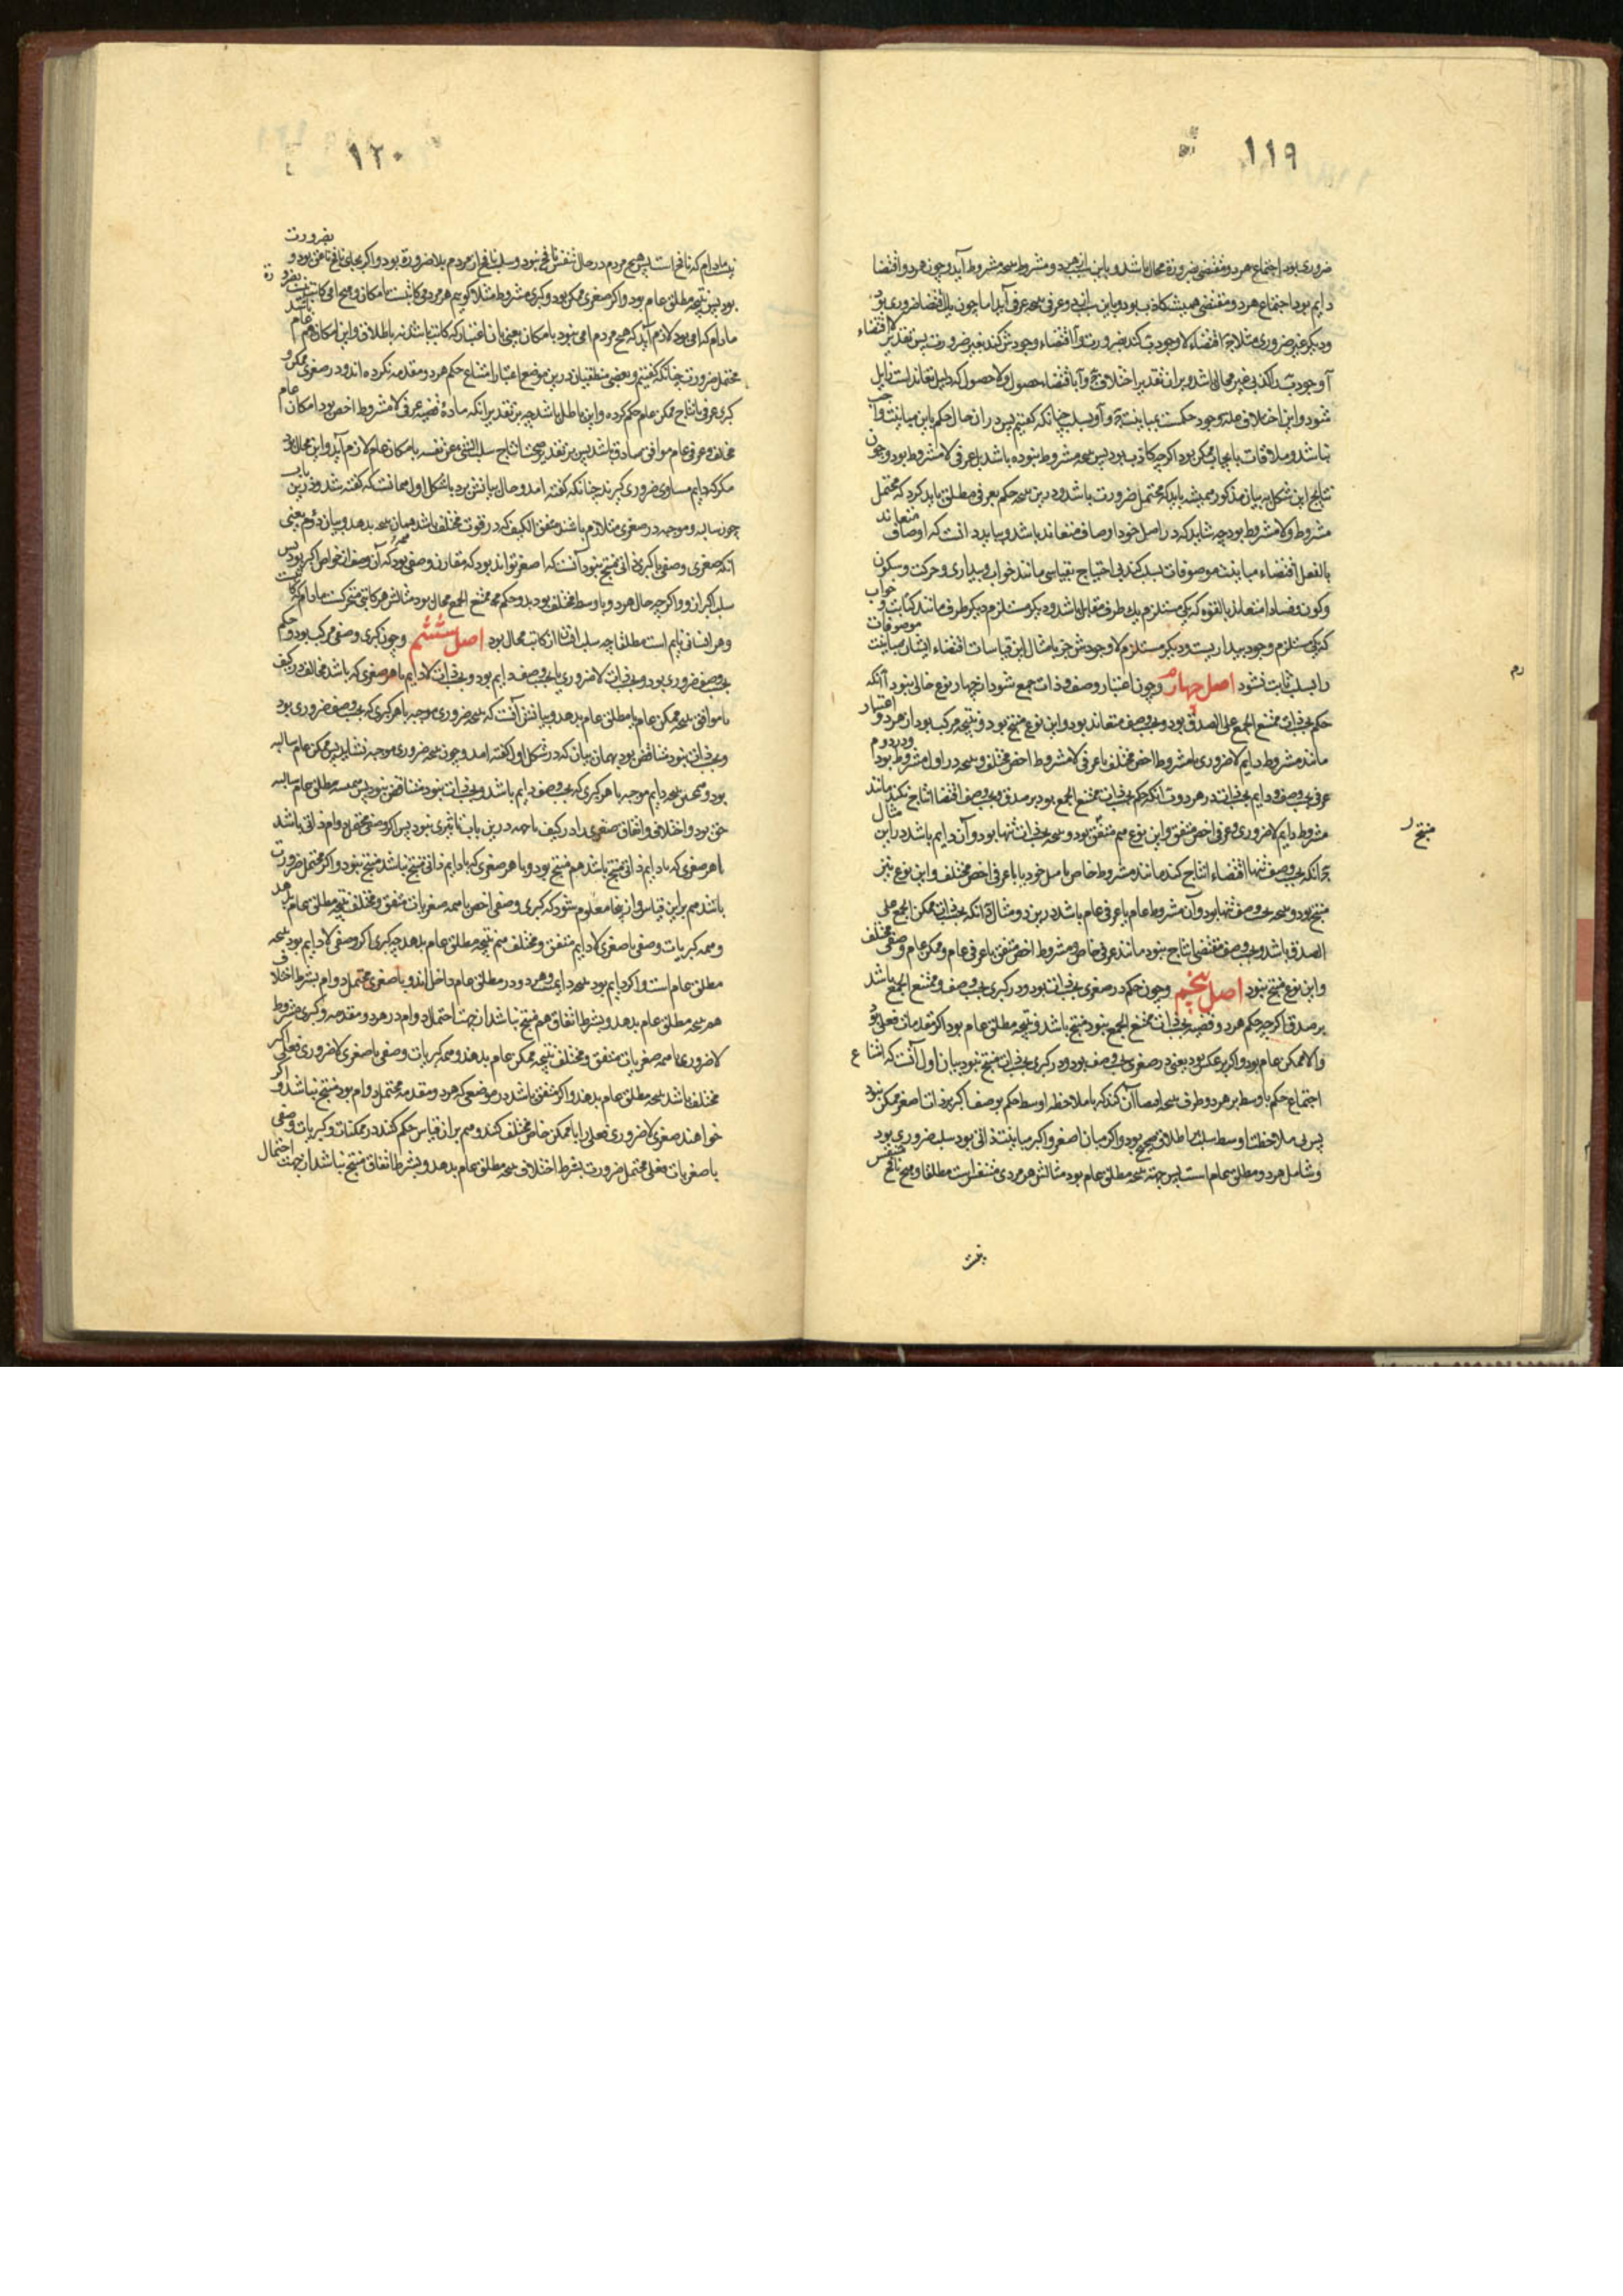 ١١٩
ضروری بود اجتماع هر دو مقتضی بضرورة محال باشد و باین سبب از هر دو مشروط نتیجه مشروط آید و چون هر دو اقتضا
دایم بود اجتماع هر دو مقتضی همیشه کاذب بود و باین سبب از دو عرفی نتیجه عرفی آید اما چون یک اقتضا ضروری بود
و دیگر غیر ضروری مثلا ج اقتضاء لاوجود ب کند بضرورت و آ اقتضاء وجودش کند بغیر ضرورت پس تقدیر اقتضاء
شود و این اختلاف علت وجود حکمست بمباینت ج و آ و بسلب چنانکه گفتیم پس در آن حال حکم باین مباینت واجب
نباشد و ملاقات بایجاب ممکن بود اگرچه کاذب بود پس نتیجه مشروط نبوده باشد بل عرفی لامشروط بود و چون
نتایج این شکل به بیان مذکور همیشه باید که محتمل ضرورت باشد و درین نتیجه حکم بعرفی مطلق باید کرد که محتمل
مشروط و لامشروط بود چه شاید که در اصل خود اوصاف متعاند باشد و بباید دانست که اوصاف متعاند
بالفعل اقتضاء مباینت موصوفات بسلب کند بی احتیاج بقیاسی مانند خواب و بیداری و حرکت و سکون
و کون و فساد اما متعاند بالقوه که یکی مستلزم یک طرف مقابل باشد و دیگر مستلزم دیگر طرف مانند کتابت و خواب
که یکی مستلزم وجود بیداریست و دیگر مستلزم لاوجودش جز بامثال این قیاسات اقتضاء ایشان مباینت موصوفات
را بسلب ثابت نشود اصل چهارم و چون اعتبار وصف و ذات جمع شود از چهار نوع خالی نبود آ آنکه
حکم بحسب ذات ممتنع الجمع علی الصدق بود و بحسب وصف متعاند بود و این نوع منتج بود و نتیجه مرکب بود از هر دو اعتبار
مانند مشروط دایم لاضروری با مشروط اخص مختلف یا عرفی لامشروط اخص مختلف و نتیجه در اول مشروط بود و در دوم
عرفی بحسب وصف و دایم بحسب ذات در هر دو ب آنکه حکم بحسب ذات ممتنع الجمع بود بر صدق و بحسب وصف اقتضا انتاج نکند مانند
مشروط دایم لاضروری و عرفی اخص متفق و این نوع هم منتج بود و نتیجه بحسب ذات تنها بود و آن دایم باشد در این مثال
ج آنکه بحسب وصف تنها اقتضاء انتاج کند مانند مشروط خاص با مثل خود یا با عرفی اخص مختلف و این نوع نیز
منتج بود و نتیجه بحسب وصف تنها بود و آن مشروط عام یا عرفی عام باشد درین دو مثال د آنکه بحسب ذات ممکن الجمع علی
الصدق باشد و بحسب وصف مقتضی انتاج نبود مانند عرفی خاص و مشروط اخص متفق یا عرفی عام و ممکن عام وصفی مختلف
و این نوع منتج نبود اصل پنجم و چون حکم در صغری بحسب ذات بود و در کبری بحسب وصف و ممتنع الجمع باشد
بر صدق اگرچه حکم هر دو قضیه بحسب ذات ممتنع الجمع نبود منتج باشد و نتیجه مطلق عام بود اگر مقدمات فعلی بود
و الا ممکن عام بود و اگر بر عکس بود یعنی در صغری بحسب وصف بود و در کبری بحسب ذات منتج نبود بیان اول آنست که امتناع
اجتماع حکم باوسط بر هر دو طرف نتیجه اقتضاء آن کند که با ملاحظه اوسط حکم بوصف اکبر بر ذات اصغر ممکن نبود
پس بی ملاحظت اوسط سلب باطلاق صحیح بود و اگر میان اصغر و اکبر مباینت ذاتی بود سلب ضروری بود
و شامل هر دو مطلق عام است پس جهة نتیجه مطلق عام بود مثالش هر مردمی متنفس است مطلقا و هیچ نافخ متنفس
١٢٠
نیست مادام که نافخ است پس هیچ مردم در حال تنفس نافخ نبود و سلب نافخ از مردم بلاضرورة بود و اگر بجای نافخ ناهق بود و بضرورت
بود پس نتیجه مطلق عام بود و اگر صغری ممکن بود و کبری مشروط مثلا گوییم هر مردمی کاتبست بامکان و هیچ امی کاتب نیست بضرورة
مادام که امی بود لازم آید که هیچ مردم امی نبود بامکان یعنی بآن اعتبار که کاتب باشد نه باطلاق و این امکان هم عام باشد
محتمل ضرورت چنانکه گفتیم و بعضی منطقیان درین موضع اعتبار امتناع حکم هر دو مقدمه نکرده اند و در صغری ممکن و
کبری عرفی بانتاج ممکن عام حکم کرده و این باطل باشد چه بر تقدیر آنکه ماده قضیه عرفی لامشروط اخص بود امکان عام
مخالف و عرفی عام موافق صادق باشد پس بر تقدیر صحت انتاج سلب الشیء عن نفسه بامکان عام لازم آید و این محال بود
مگر که دایم مساوی ضروری گیرند چنانکه گفته آمد و حال بیانش برد باشکل اول همانست که گفته شد و درین باب
چون سالبه و موجبه در صغری متلازم باشند متفق الکیف که در قوت مختلف باشد همان نتیجه بدهد و بیان دوم یعنی
آنکه صغری وصفی با کبری ذاتی منتج نبود آنست که اصغر تواند بود که مقارن وصفی بود که آن وصف از خواص اکبر بود پس
سلب اکبر از او و اگرچه حال هر دو با وسط مختلف بود بدو حکم ممتنع الجمع محال بود مثالش هر کاتبی متحرکست مادام که کاتبست
و هر انسانی نایم است مطلقا چه سلب انسان از کاتب محال بود اصل ششم و چون کبری وصفی مرکب بود و حکم
بحسب وصف ضروری بود و بحسب ذات لاضروری یا بحسب وصف دایم بود و بحسب ذات لادایم با هر صغری که باشد مخالف در کیف
یا موافق نتیجه ممکن عام یا مطلق عام بدهد و بیانش آنست که نتیجه ضروری موجبه با هر کبری که بحسب وصف ضروری بود
و بحسب ذات نبود متناقض بود بهمان بیان که در شکل اول گفته آمد و چون نتیجه ضروری موجبه نشاید پس ممکن عام سالبه
بود و همچنین نتیجه دایم موجبه با هر کبری که بحسب وصف دایم باشد و بحسب ذات نبود متناقض بود پس همیشه مطلق عام سالبه
حق بود و اختلاف و اتفاق صغری را در کیف یا جهة درین باب تاثیری نبود پس اگر وصفی محتمل دوام ذاتی باشد
با هر صغری که با دایم ذاتی منتج باشد هم منتج بود و با هر صغری که با دایم ذاتی منتج نباشد منتج نبود و اگر محتمل ضرورت
باشد هم برین قیاس و از ینجا معلوم شود که کبری وصفی اخص با همه صغریات متفق و مختلف نتیجه مطلق عام بدهد
و همه کبریات وصفی با صغری لادایم متفق و مختلف هم نتیجه مطلق عام بدهد چه کبری اگر وصفی لادایم بود نتیجه
مطلق عام است و اگر دایم بود نتیجه دایم و هر دو در مطلق عام داخل اند و با صغری محتمل دوام بشرط اختلاف
هم نتیجه مطلق عام بدهد و بشرط اتفاق هم منتج نباشد از جهت احتمال دوام در هر دو مقدمه و کبری مشروط
لاضروری با همه صغریات متفق و مختلف نتیجه ممکن عام بدهند و همه کبریات وصفی با صغری لاضروری فعلی اگر
مختلف باشد نتیجه مطلق عام بدهند و اگر متفق باشد در موضعی که هر دو مقدمه محتمل دوام بود منتج نباشد و اگر
خواهند صغری لاضروری فعلی را با ممکن خاص مختلف کنند و هم بر آن قیاس حکم کنند در ممکنات و کبریات وصفی
با صغریات فعلی محتمل ضرورت بشرط اختلاف نتیجه مطلق عام بدهد و بشرط اتفاق منتج نباشد از جهت احتمال